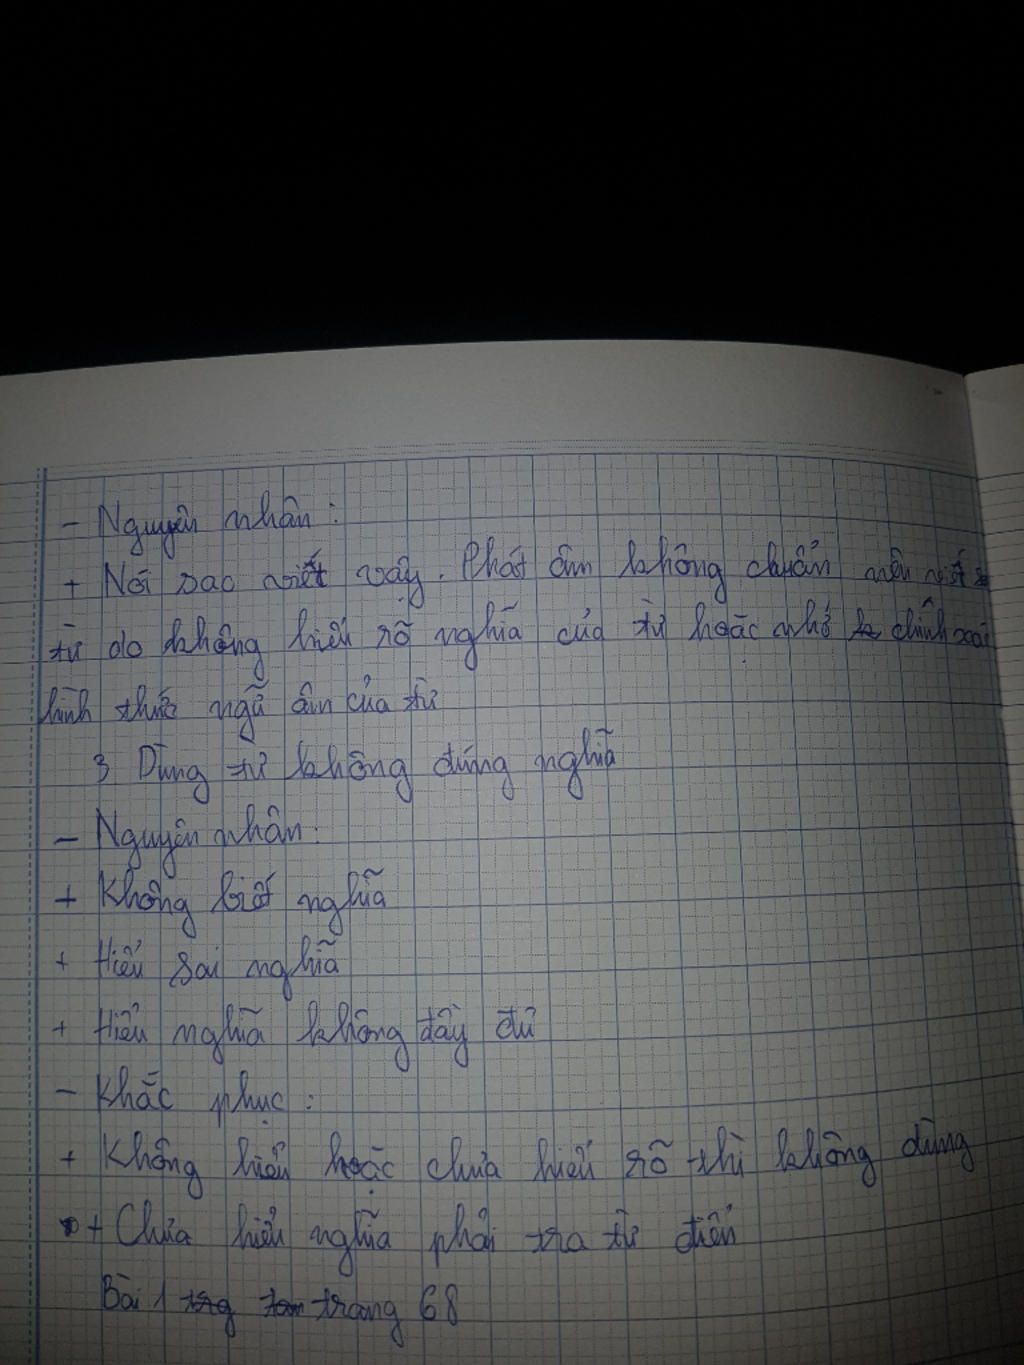 - Nguyên nhân:
+ Nói sao viết vậy. Phát âm không chuẩn nên viết s
từ do không hiểu rõ nghĩa của từ hoặc nhớ k chính xác
hình thức ngữ âm của từ
3 Dùng từ không đúng nghĩa
- Nguyên nhân:
+ Không biết nghĩa
+ Hiểu sai nghĩa
+ Hiểu nghĩa không đầy đủ
- Khắc phục:
+ Không hiểu hoặc chưa hiểu rõ thì không dùng
+ Chưa hiểu nghĩa phải tra từ điển
Bài 1 trang 68